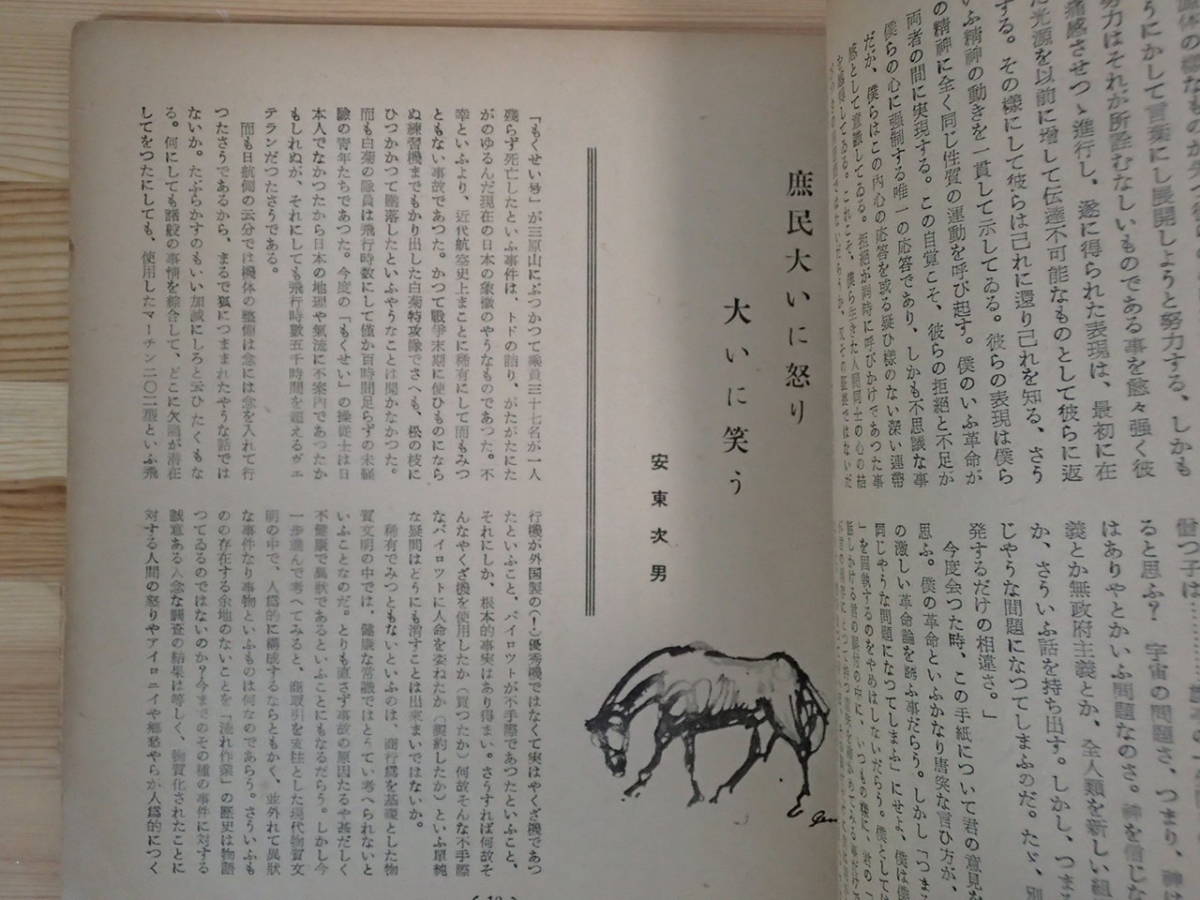 うにかして言葉にし展開しようと努力する、しかも
努力はそれが所詮むなしいものである事を愈々強く彼
痛感させつゝ進行し、遂に得られた表現は、最初に在
た光源を以前に増して伝達不可能なものとして彼らに返
する。その様にして彼らは己れに還り己れを知る、さう
いふ精神の動きを一貫して示してゐる。彼らの表現は僕ら
の精神に全く同じ性質の運動を呼び起す。僕のいふ革命が
両者の間に実現する。この自覚こそ、彼らの拒絶と不足か
僕らの心に強制する唯一の応答であり、しかも不思議な事
だが、僕らはこの内心の応答を或る疑ひ様のない深い連帯
感として意識してゐる。拒絶が同時に呼びかけであつた事
ると思ふ? 宇宙の問題さ、つまり、神は
はありやとかいふ問題なのさ。神を信じな
義とか無政府主義とか、全人類を新しい組
か、さういふ話を持ち出す。しかし、つまる
じやうな問題になつてしまふのだ。たゞ、別
発するだけの相違さ。」
今度会つた時、この手紙について君の意見な
思ふ。僕の革命といふかなり唐突な言ひ方が、
の激しい革命論を誘ふ事だらう。しかし「つまる
同じやうな問題になつてしまふ」にせよ、僕は僕
」を固執するのをやめはしないだらう。僕としては
庶民大いに怒り
大いに笑う
安東次男
「もくせい号」が三原山にぶつかつて乗員三十七名が一人
残らず死亡したといふ事件は、トドの詰り、がたがたにた
がのゆるんだ現在の日本の象徴のやうなものであつた。不
幸といふより、近代航空史上まことに稀有にして而もみつ
ともない事故であつた。かつて戦争末期に使ひものになら
ぬ練習機までもかり出した白菊特攻隊でさへも、松の枝に
ひつかかつて墜落したといふやうなことは聞かなかつた。
而も白菊の隊員は飛行時数にして僅か百時間足らずの未経
験の青年たちであつた。今度の「もくせい」の操従士は日
本人でなかつたから日本の地理や気流に不案内であつたか
もしれぬが、それにしても飛行時数五千時間を超えるヴェ
テランだつたさうである。
而も日航側の云分では機体の整備は念には念を入れて行
つたさうであるから、まるで狐につままれたやうな話では
ないか。たぶらかすのもいい加減にしろと云ひたくもな
る。何にしても諸般の事情を綜合して、どこに欠陥が潜在
してをつたにしても、使用したマーチン二〇二型といふ飛
行機が外国製の(!)優秀機ではなくて実はやくざ機であつ
たといふこと、パイロットが不手際であつたといふこと、
それにしか、根本的事実はあり得まい。さうすれば何故そ
んなやくざ機を使用したか(買つたか)何故そんな不手際
なパイロツトに人命を委ねたか(契約したか)といふ単純
な疑問はどうにも消すことは出来まいではないか。
稀有でみつともないといふのは、商行為を基礎とした物
質文明の中では、健康な常識ではとうてい考へられないと
いふことなのだ。とりも直さず事故の原因たるや甚だしく
不健康で異状であるといふことにもなるだらう。しかし今
一歩進んで考へてみると、商取引を支柱とした現代物質文
明の中で、人為的に構成するならともかく、並外れて異状
な事件なり事物といふものは何なのであらう。さういふも
のの存在する余地のないことを「流れ作業」の歴史は物語
つてゐるのではないのか?今までのその種の事件に対する
誠意ある入念な調査の結果は等しく、物質化されたことに
対する人間の怒りやアイロニイや郷愁やらが人為的につく